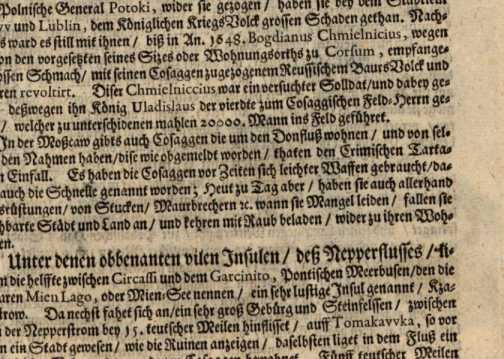 Polnische General Potoki, wider sie gezogen / haben sie bey dem Städtlein
vv und Lublin, dem Königlichen KriegsVolck grossen Schaden gethan. Nach-
s ward es still mit ihnen / biß in An. 1648. Bogdianus Chmielnicius, wegen
on den vorgesetzten seines Sizes oder Wohnungsorths zu Corsum, empfange-
ossen Schmach / mit seinen Cosaggen zugezogenem Reussischem BaursVolck und
ren revoltirt. Diser Chmielniccius war ein versuchter Soldat / und dabey ge-
deßwegen ihn König Uladislaus der vierdte zum Cosaggischen Feld-Herrn ge-
/ welcher zu unterschidenen mahlen 20000. Mann ins Feld geführet.
In der Moßcaw gibts auch Cosaggen die um den Donfluß wohnen / und von sel-
den Nahmen haben / dise wie obgemeldt worden / thaten den Crimischen Tarta-
n Einfall. Es haben die Cosaggen vor Zeiten sich leichter Waffen gebraucht / da-
auch die Schnelle genannt worden; Heut zu Tag aber / haben sie auch allerhand
srüstungen / von Stucken / Maurbrechern ꝛc. wann sie Mangel leiden / fallen sie
hbarte Städt und Land an / und kehren mit Raub beladen / wider zu ihren Woh-
en.
Unter denen obbenanten vilen Insulen / deß Nepperflusses / li-
in die helffte zwischen Circassi und dem Garcinito, Pontischen Meerbusen / den die
aren Mien Lago, oder Mien-See nennen / ein sehr lustige Insul genannt / Kza-
trow. Da nechst fahet sich an / ein sehr groß Gebürg und Steinfelssen / zwischen
n der Nepperstrom bey 15. teutscher Meilen hinfliesset / auff Tomakavvka, so vor
n ein Stadt gewesen / wie die Ruinen anzeigen / daselbsten liget in dem Fluß ein
Cosaggen bewohnet. Fünff teutscher Meilen